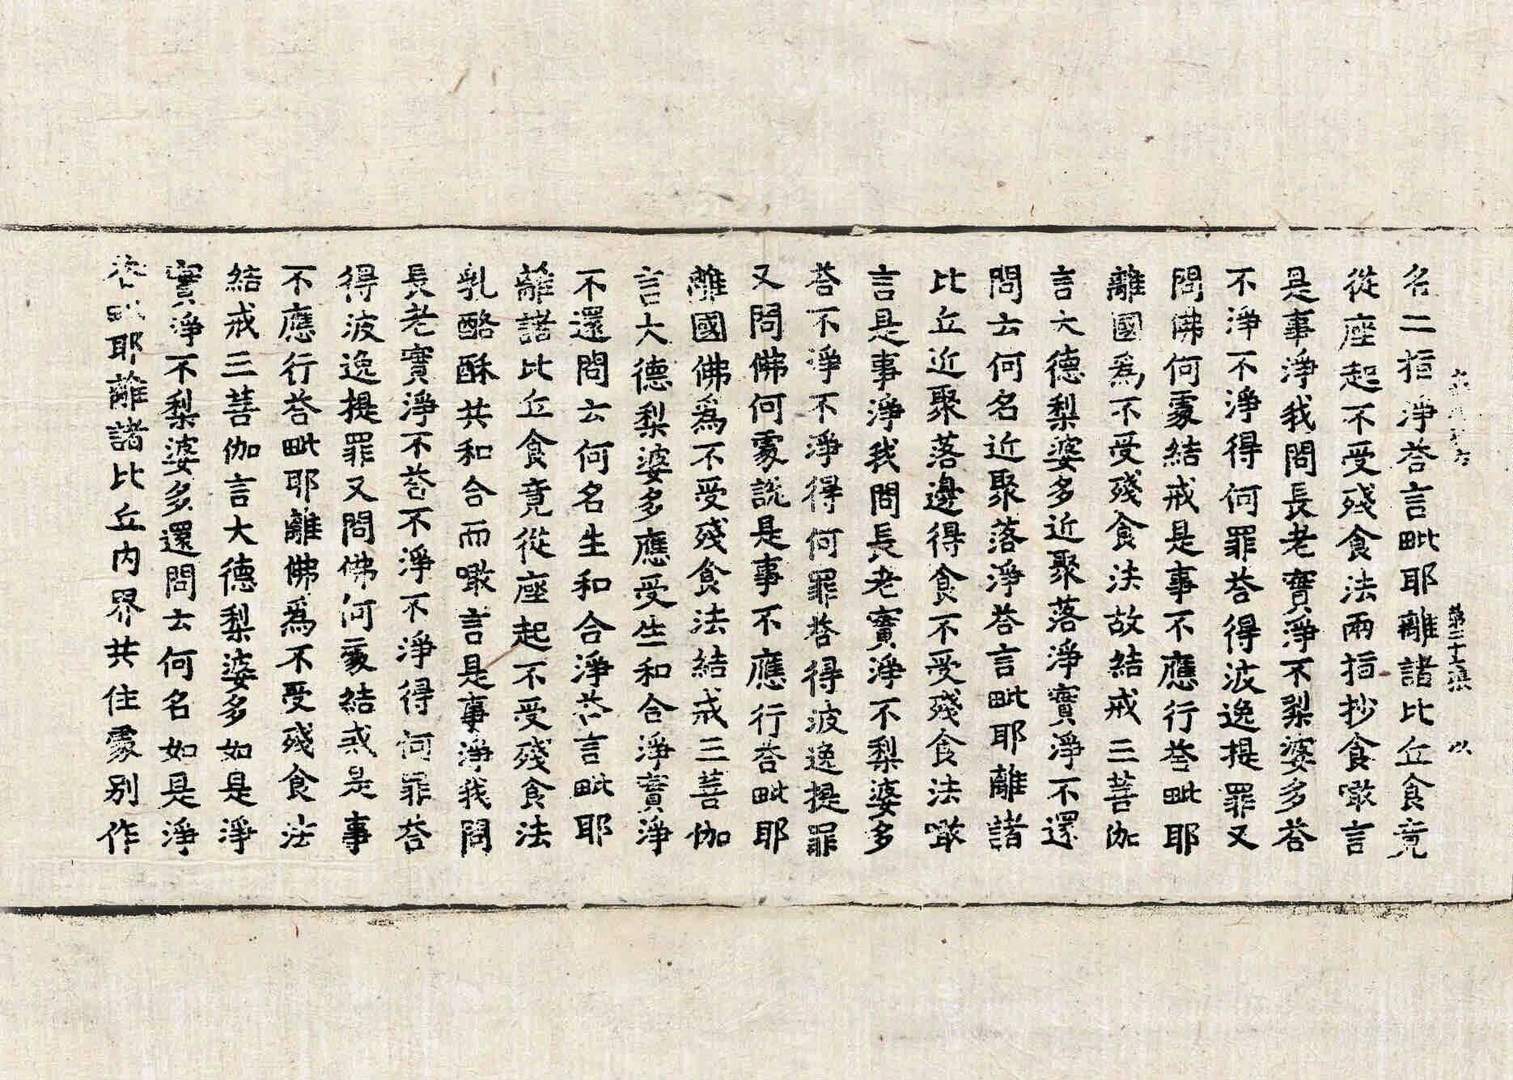 第二十七張 以
名二指淨荅言毗耶離諸比丘食竟
從座起不受殘食法兩指抄食噉言
是事淨我問長老實淨不梨婆多荅
不淨不淨得何罪荅得波逸提罪又
問佛何處結戒是事不應行荅毗耶
離國爲不受殘食法故結戒三菩伽
言大德梨婆多近聚落淨實淨不還
問云何名近聚落淨荅言毗耶離諸
比丘近聚落邊得食不受殘食法噉
言是事淨我問長老實淨不梨婆多
荅不淨不淨得何罪荅得波逸提罪
又問佛何處說是事不應行荅毗耶
離國佛爲不受殘食法結戒三菩伽
言大德梨婆多應受生和合淨實淨
不還問云何名生和合淨荅言毗耶
離諸比丘食竟從座起不受殘食法
乳酪酥共和合而噉言是事淨我問
長老實淨不荅不淨不淨得何罪荅
得波逸提罪又問佛何處結戒是事
不應行荅毗耶離佛爲不受殘食法
結戒三菩伽言大德梨婆多如是淨
實淨不梨婆多還問云何名如是淨
荅毗耶離諸比丘內界共住處別作